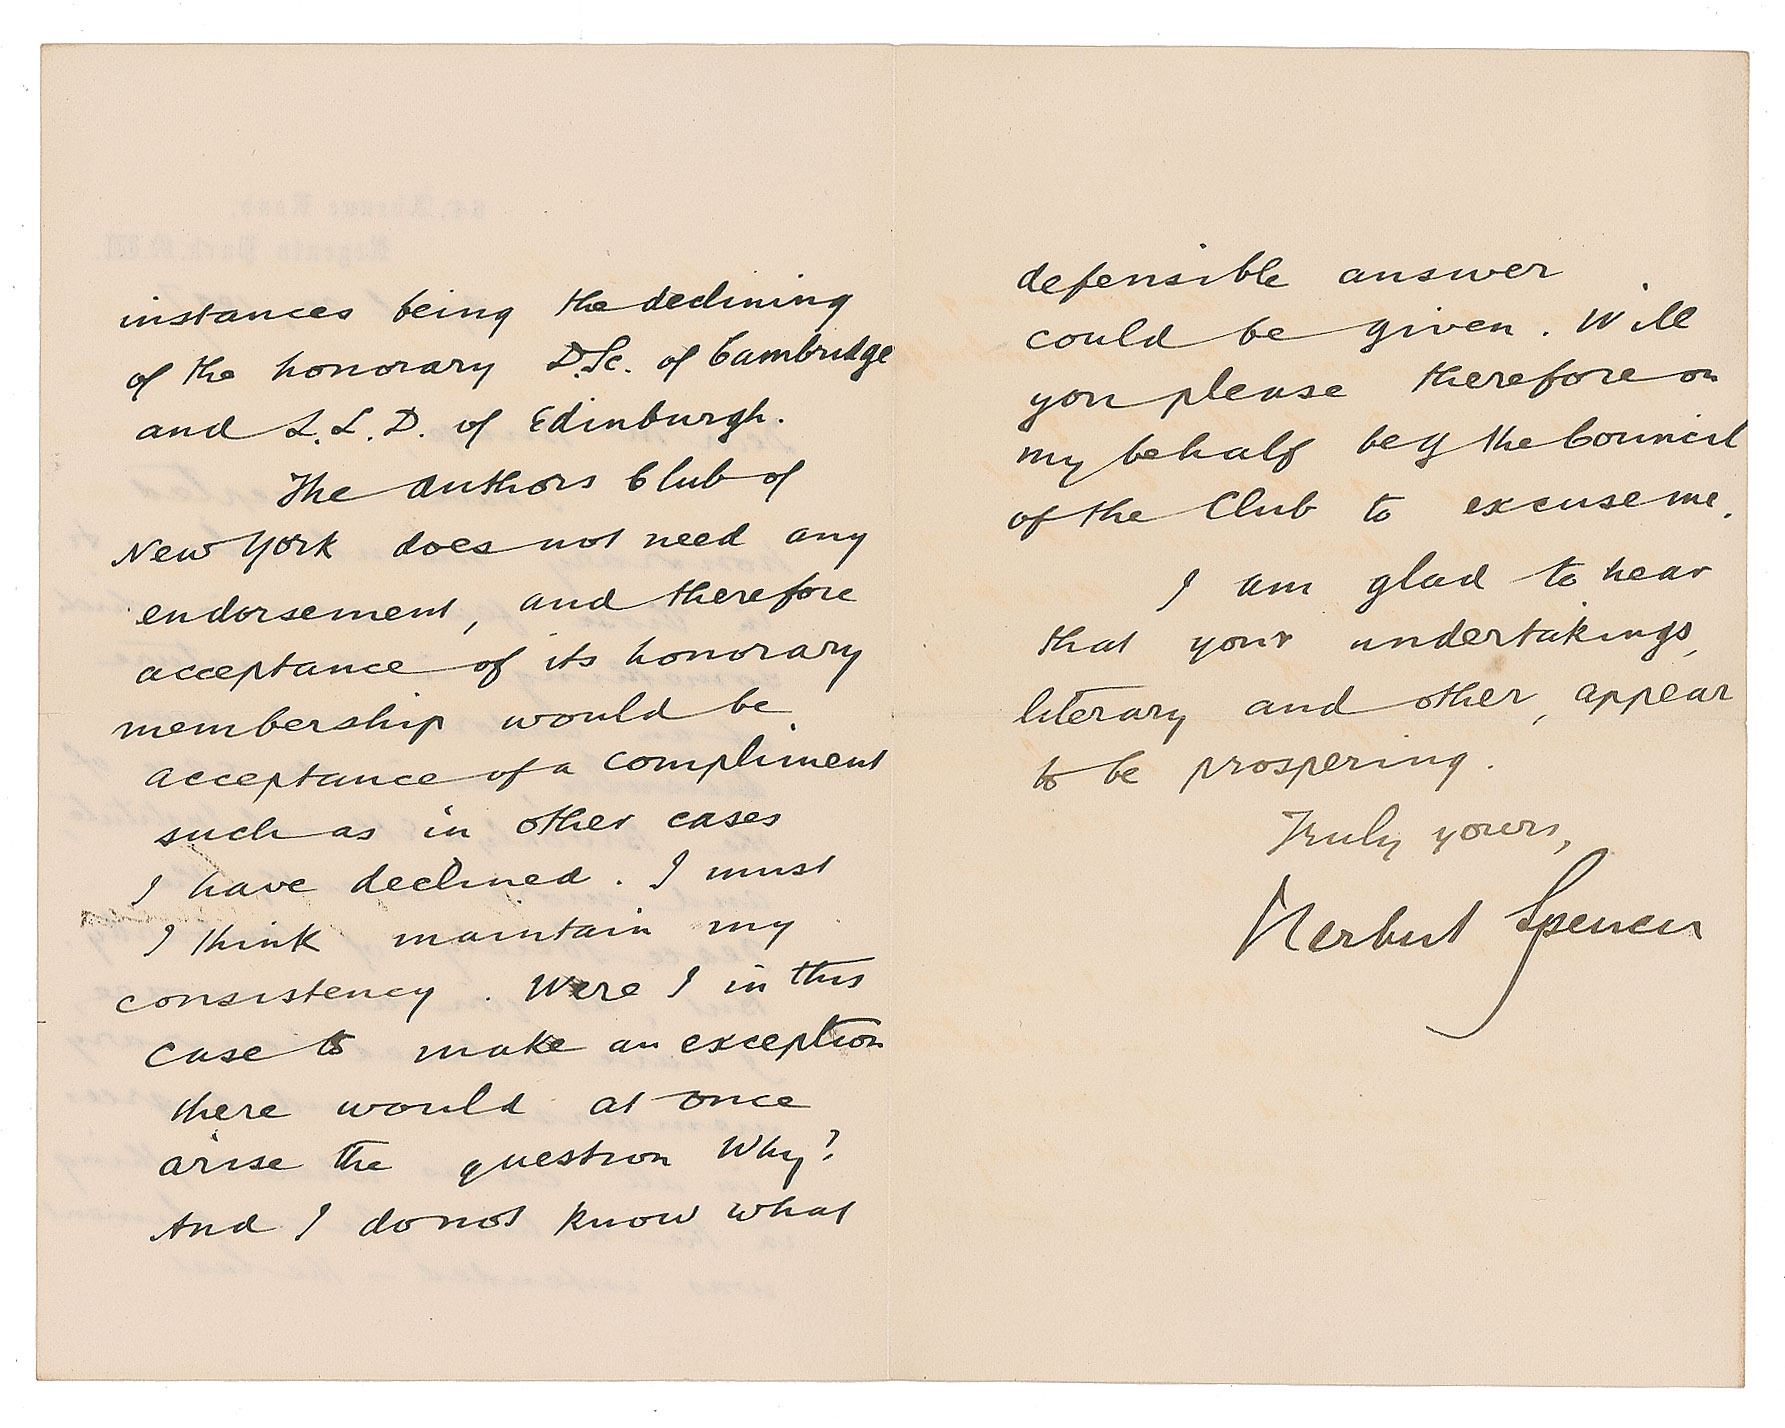 instances being the declining
of the honorary D.Sc. of Cambridge
and L.L.D. of Edinburgh.
The Authors Club of
New York does not need any
endorsement, and therefore
acceptance of its honorary
membership would be
acceptance of a compliment
such as in other cases
I have declined. I must
I think maintain my
consistency. Were I in this
case to make an exception
there would at once
arise the question Why?
And I do not know what
defensible answer
could be given. Will
you please therefore on
my behalf beg the Council
of the Club to excuse me.
I am glad to hear
that your undertakings,
literary and other, appear
to be prospering.
Truly yours,
Herbert Spencer